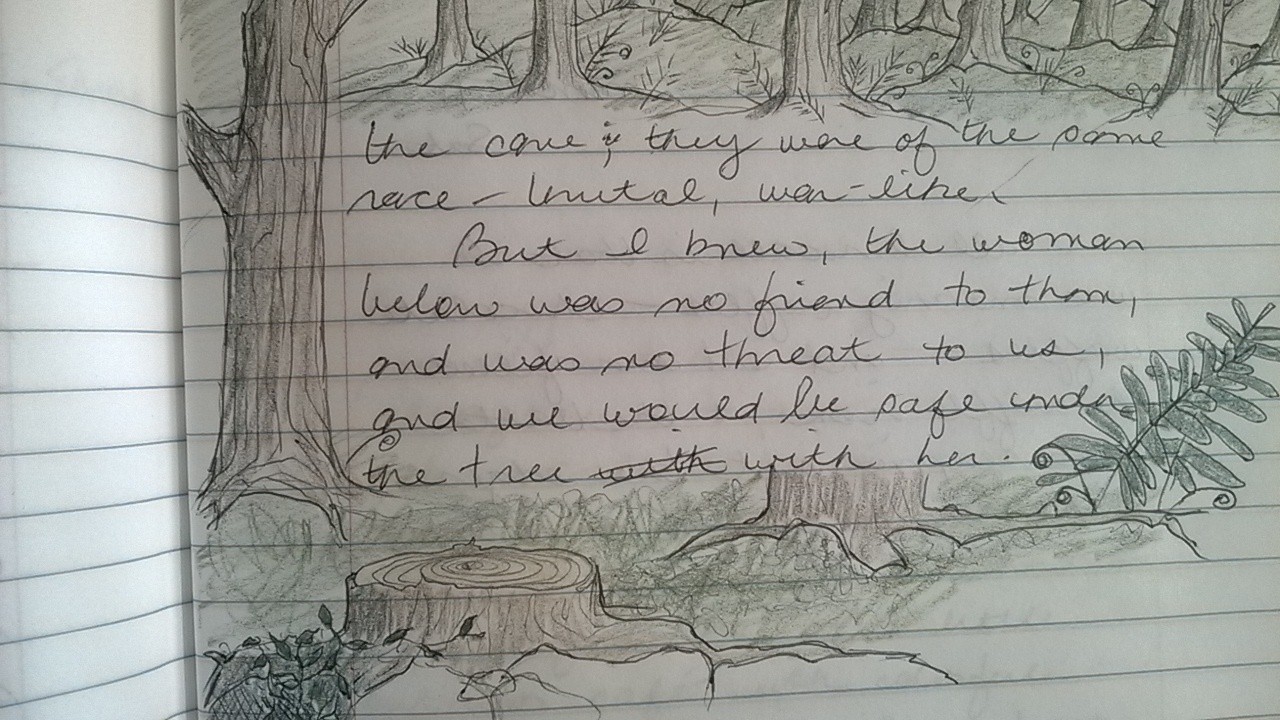 the cave; they were of the same
race - brutal, war-like.
But I knew, the woman
below was no friend to them,
and was no threat to us,
and we would be safe under
the tree with with her.